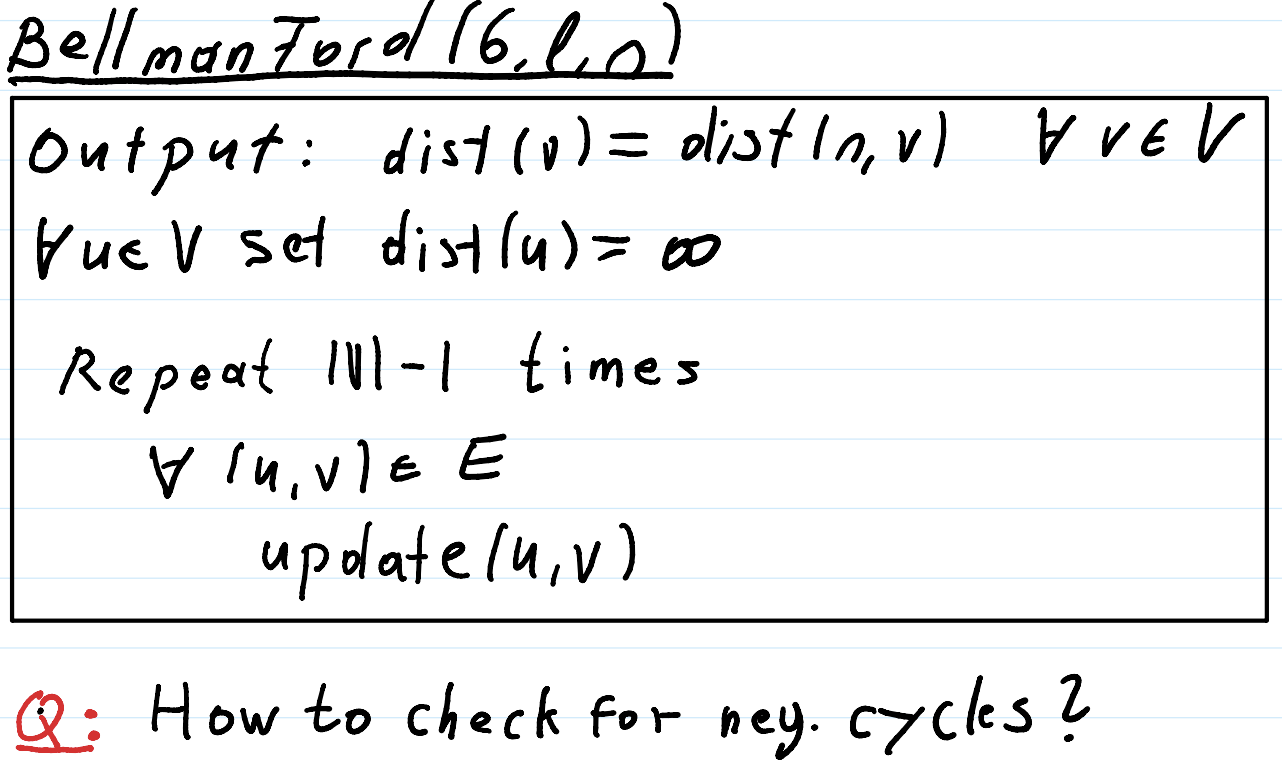 BellmanFord(G, l, s)
Output: dist(v) = dist(s, v) ∀ v ∈ V
∀ u ∈ V set dist(u) = ∞
Repeat |V| - 1 times
∀ (u, v) ∈ E
update(u, v)
Q: How to check for neg. cycles?